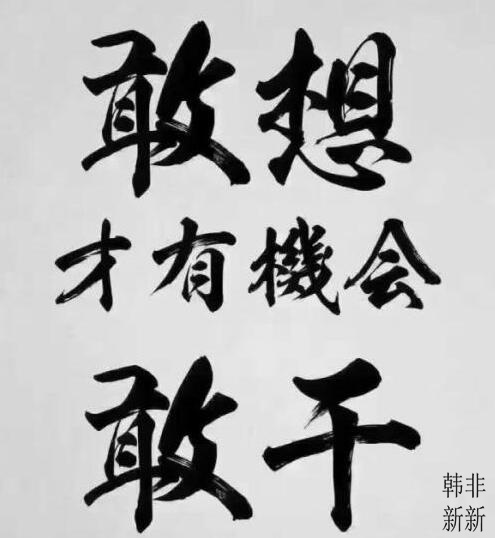 敢想
才有機会
敢干
韩非
新新